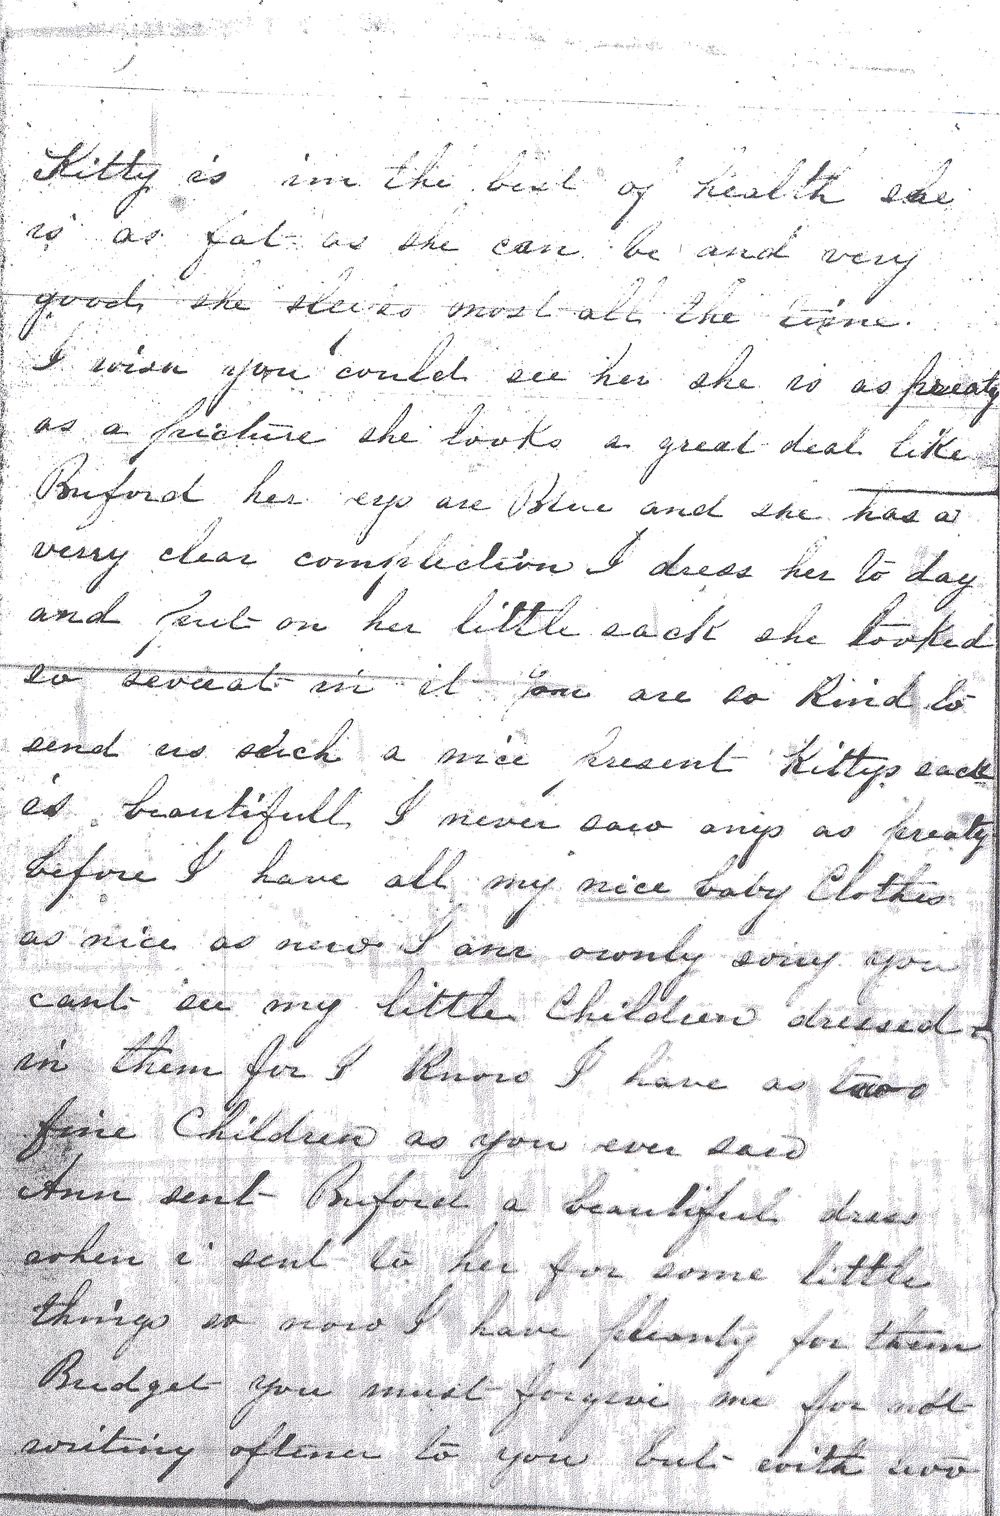 Kitty is in the best of health she
is as fat as she can be and very
good she sleeps most all the time.
I wish you could see her she is as preaty
as a picture she looks a great deal like
Buford her eys are Blue and she has a
verry clear complection I dress her to day
and put on her little sack she looked
so sweeat in it You are so kind to
send us such a nice present Kittys sack
is beautifull I never saw anys as preaty
before I have all my nice baby Clothes
as nice as new I am ownly sorry you
cant see my little Children dressed
in them for I Know I have as two
fine Children as you ever saw
Ann sent Buford a beautiful dress
when i sent to her for some little
things so now I have pleanty for them
Bridget you must forgive me for not
writing oftener to you but with two